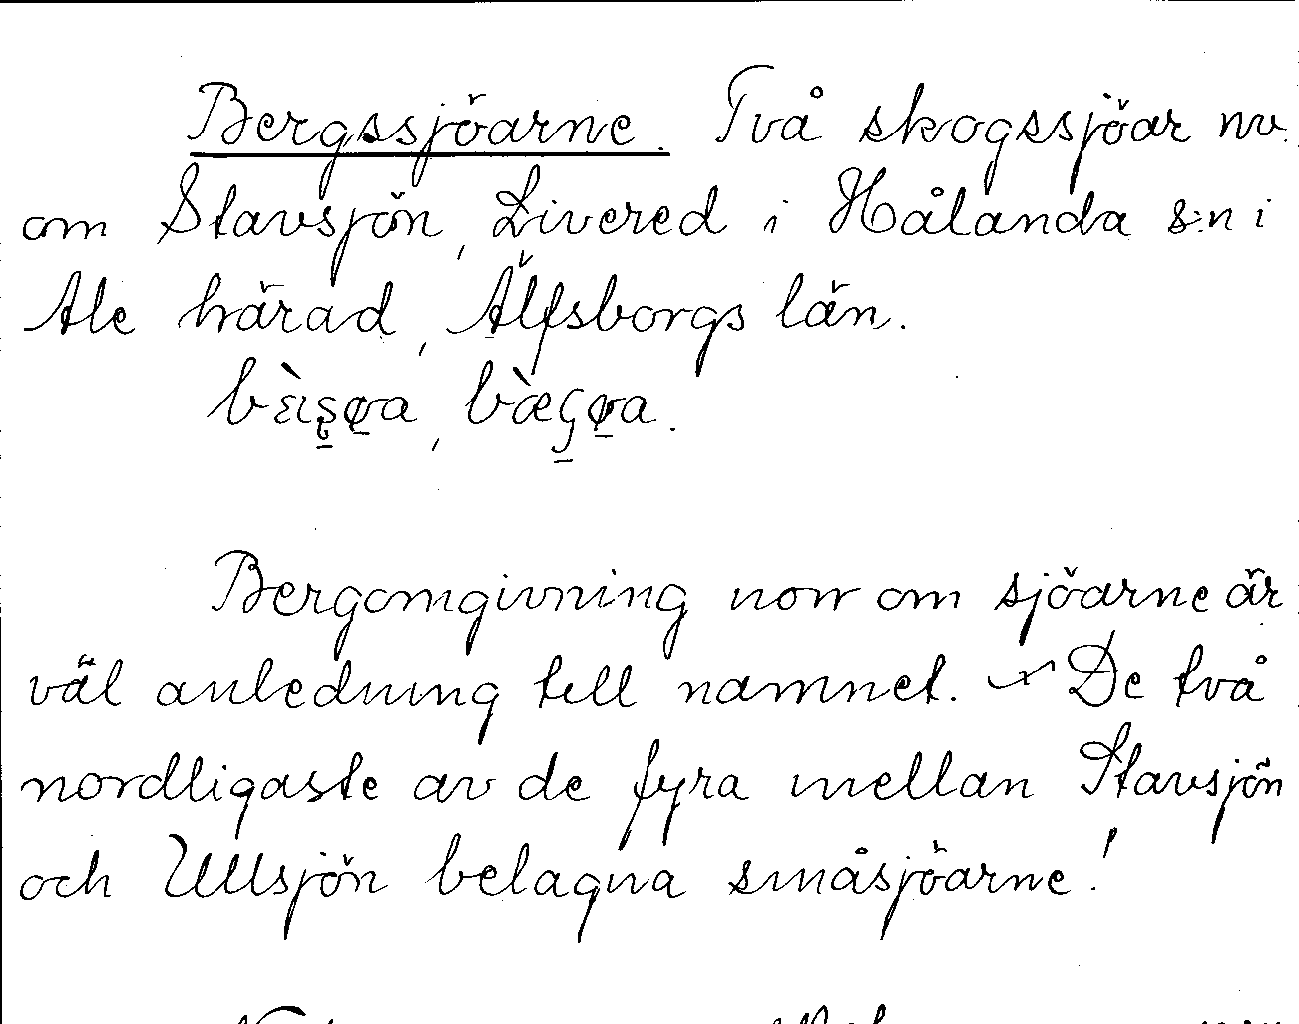 Bergssjöarne. Två skogssjöar nv.
om Stavsjön, Livered i Hålanda s:n i
Ale härad, Älfsborgs län.
Bergomgivning norr om sjöarne är
väl anledning till namnet. De två
nordligaste av de fyra mellan Stavsjön
och Ullsjön belägna småsjöarne!